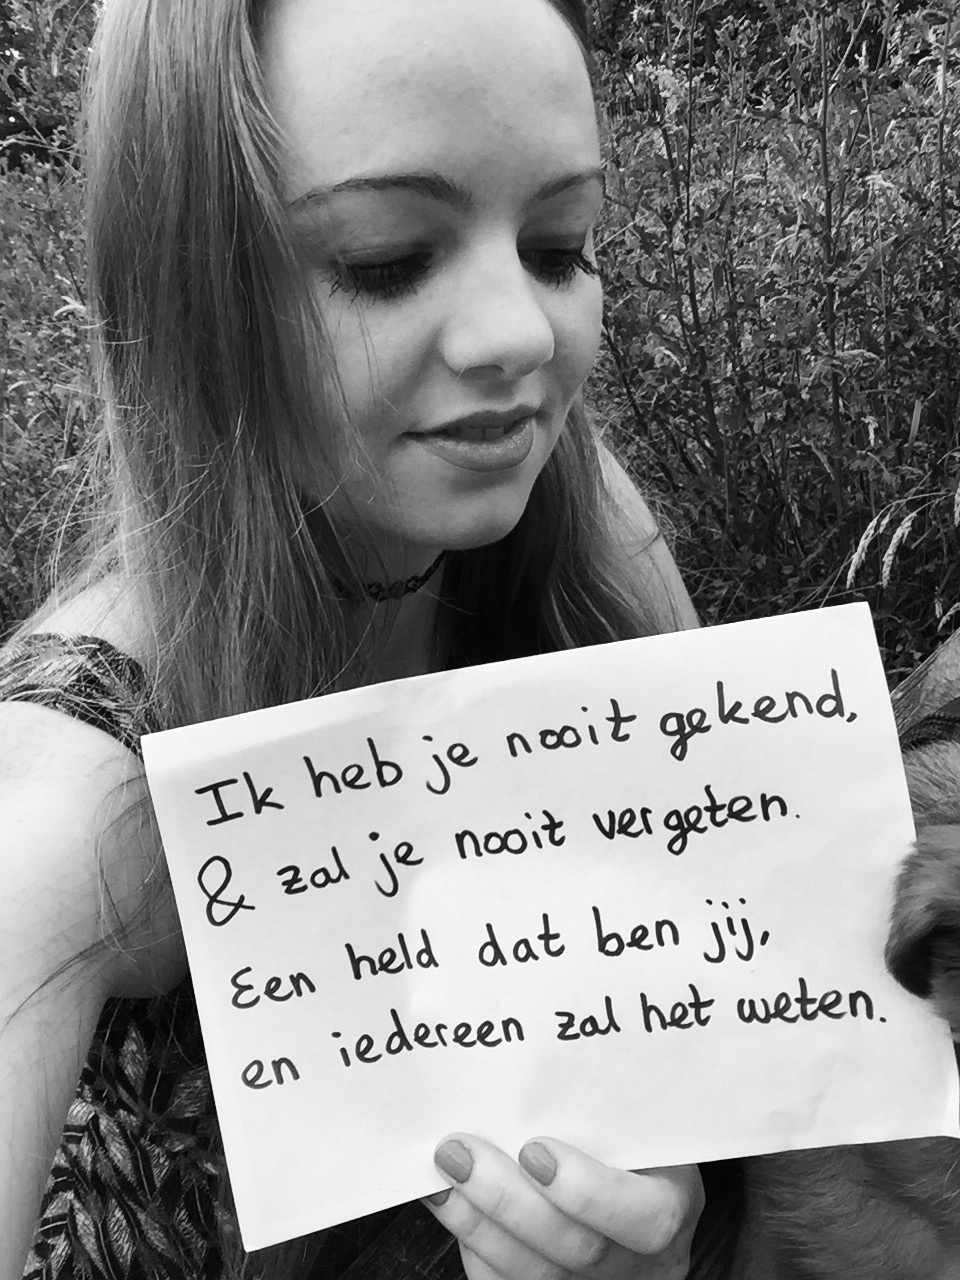 Ik heb je nooit gekend,
& zal je nooit vergeten.
Een held dat ben jij,
en iedereen zal het weten.